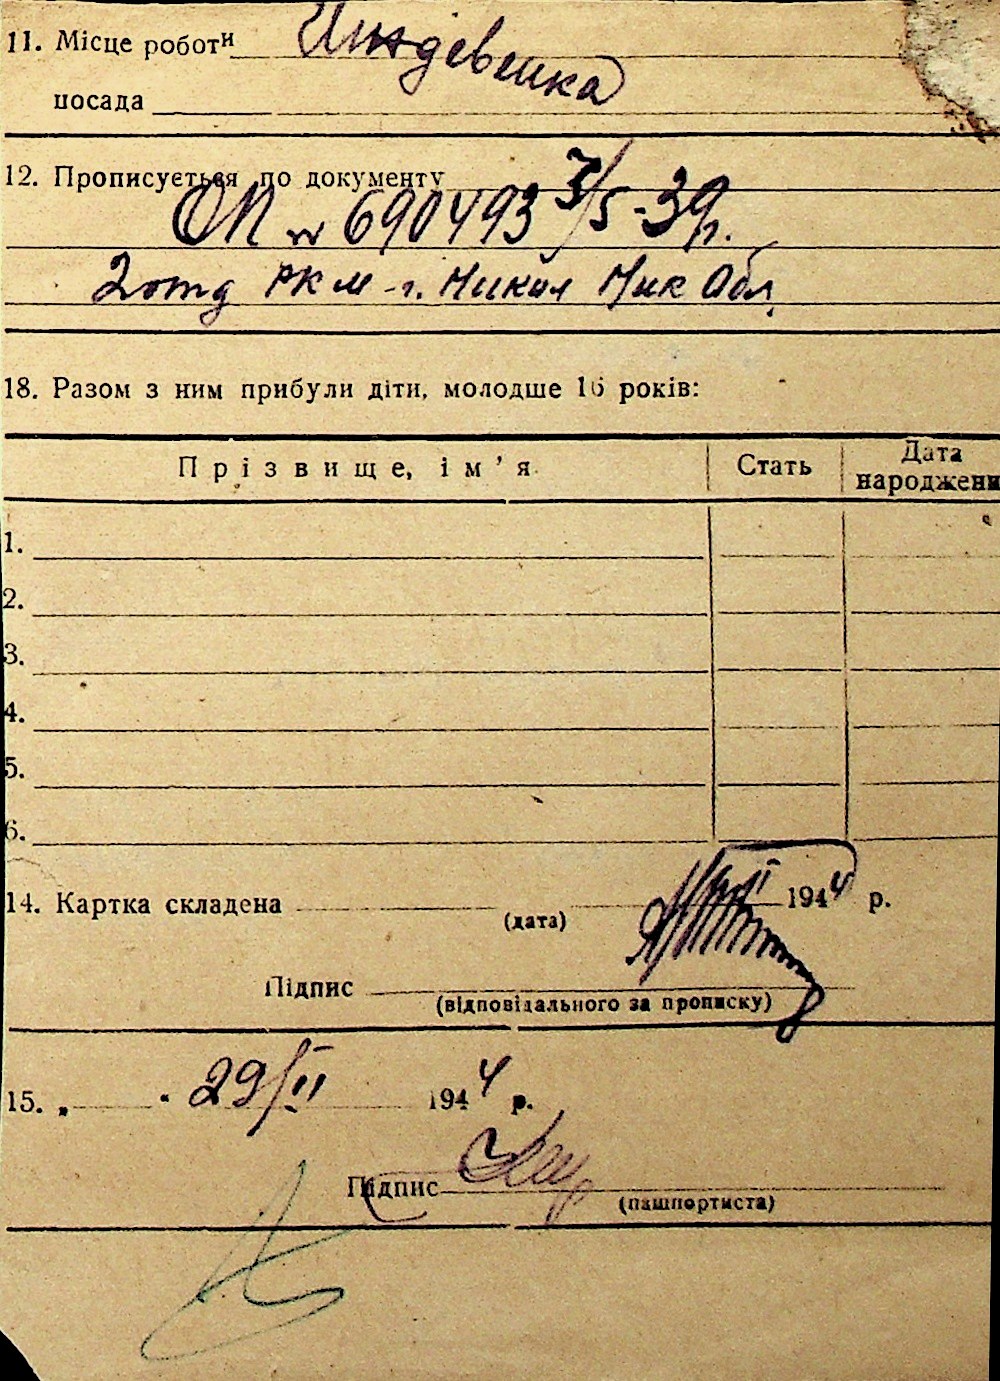 11. Місце роботи Иждевенка
посада
12. Прописується по документу
ОП № 690493 3/5-39г.
2 отд РКМ - г. Никол Ник Обл.
18. Разом з ним прибули діти, молодше 16 років:
Прізвище, ім'я Стать Дата народжени
1.
2.
3.
4.
5.
6.
14. Картка складена 1944 р.
(дата)
Підпис
(відповідального за прописку)
15. „ “ 29/II 1944 р.
Підпис
(пашпортиста)